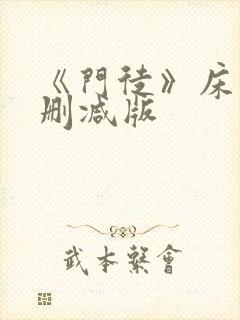 《門徒》床
删减版
武本發會